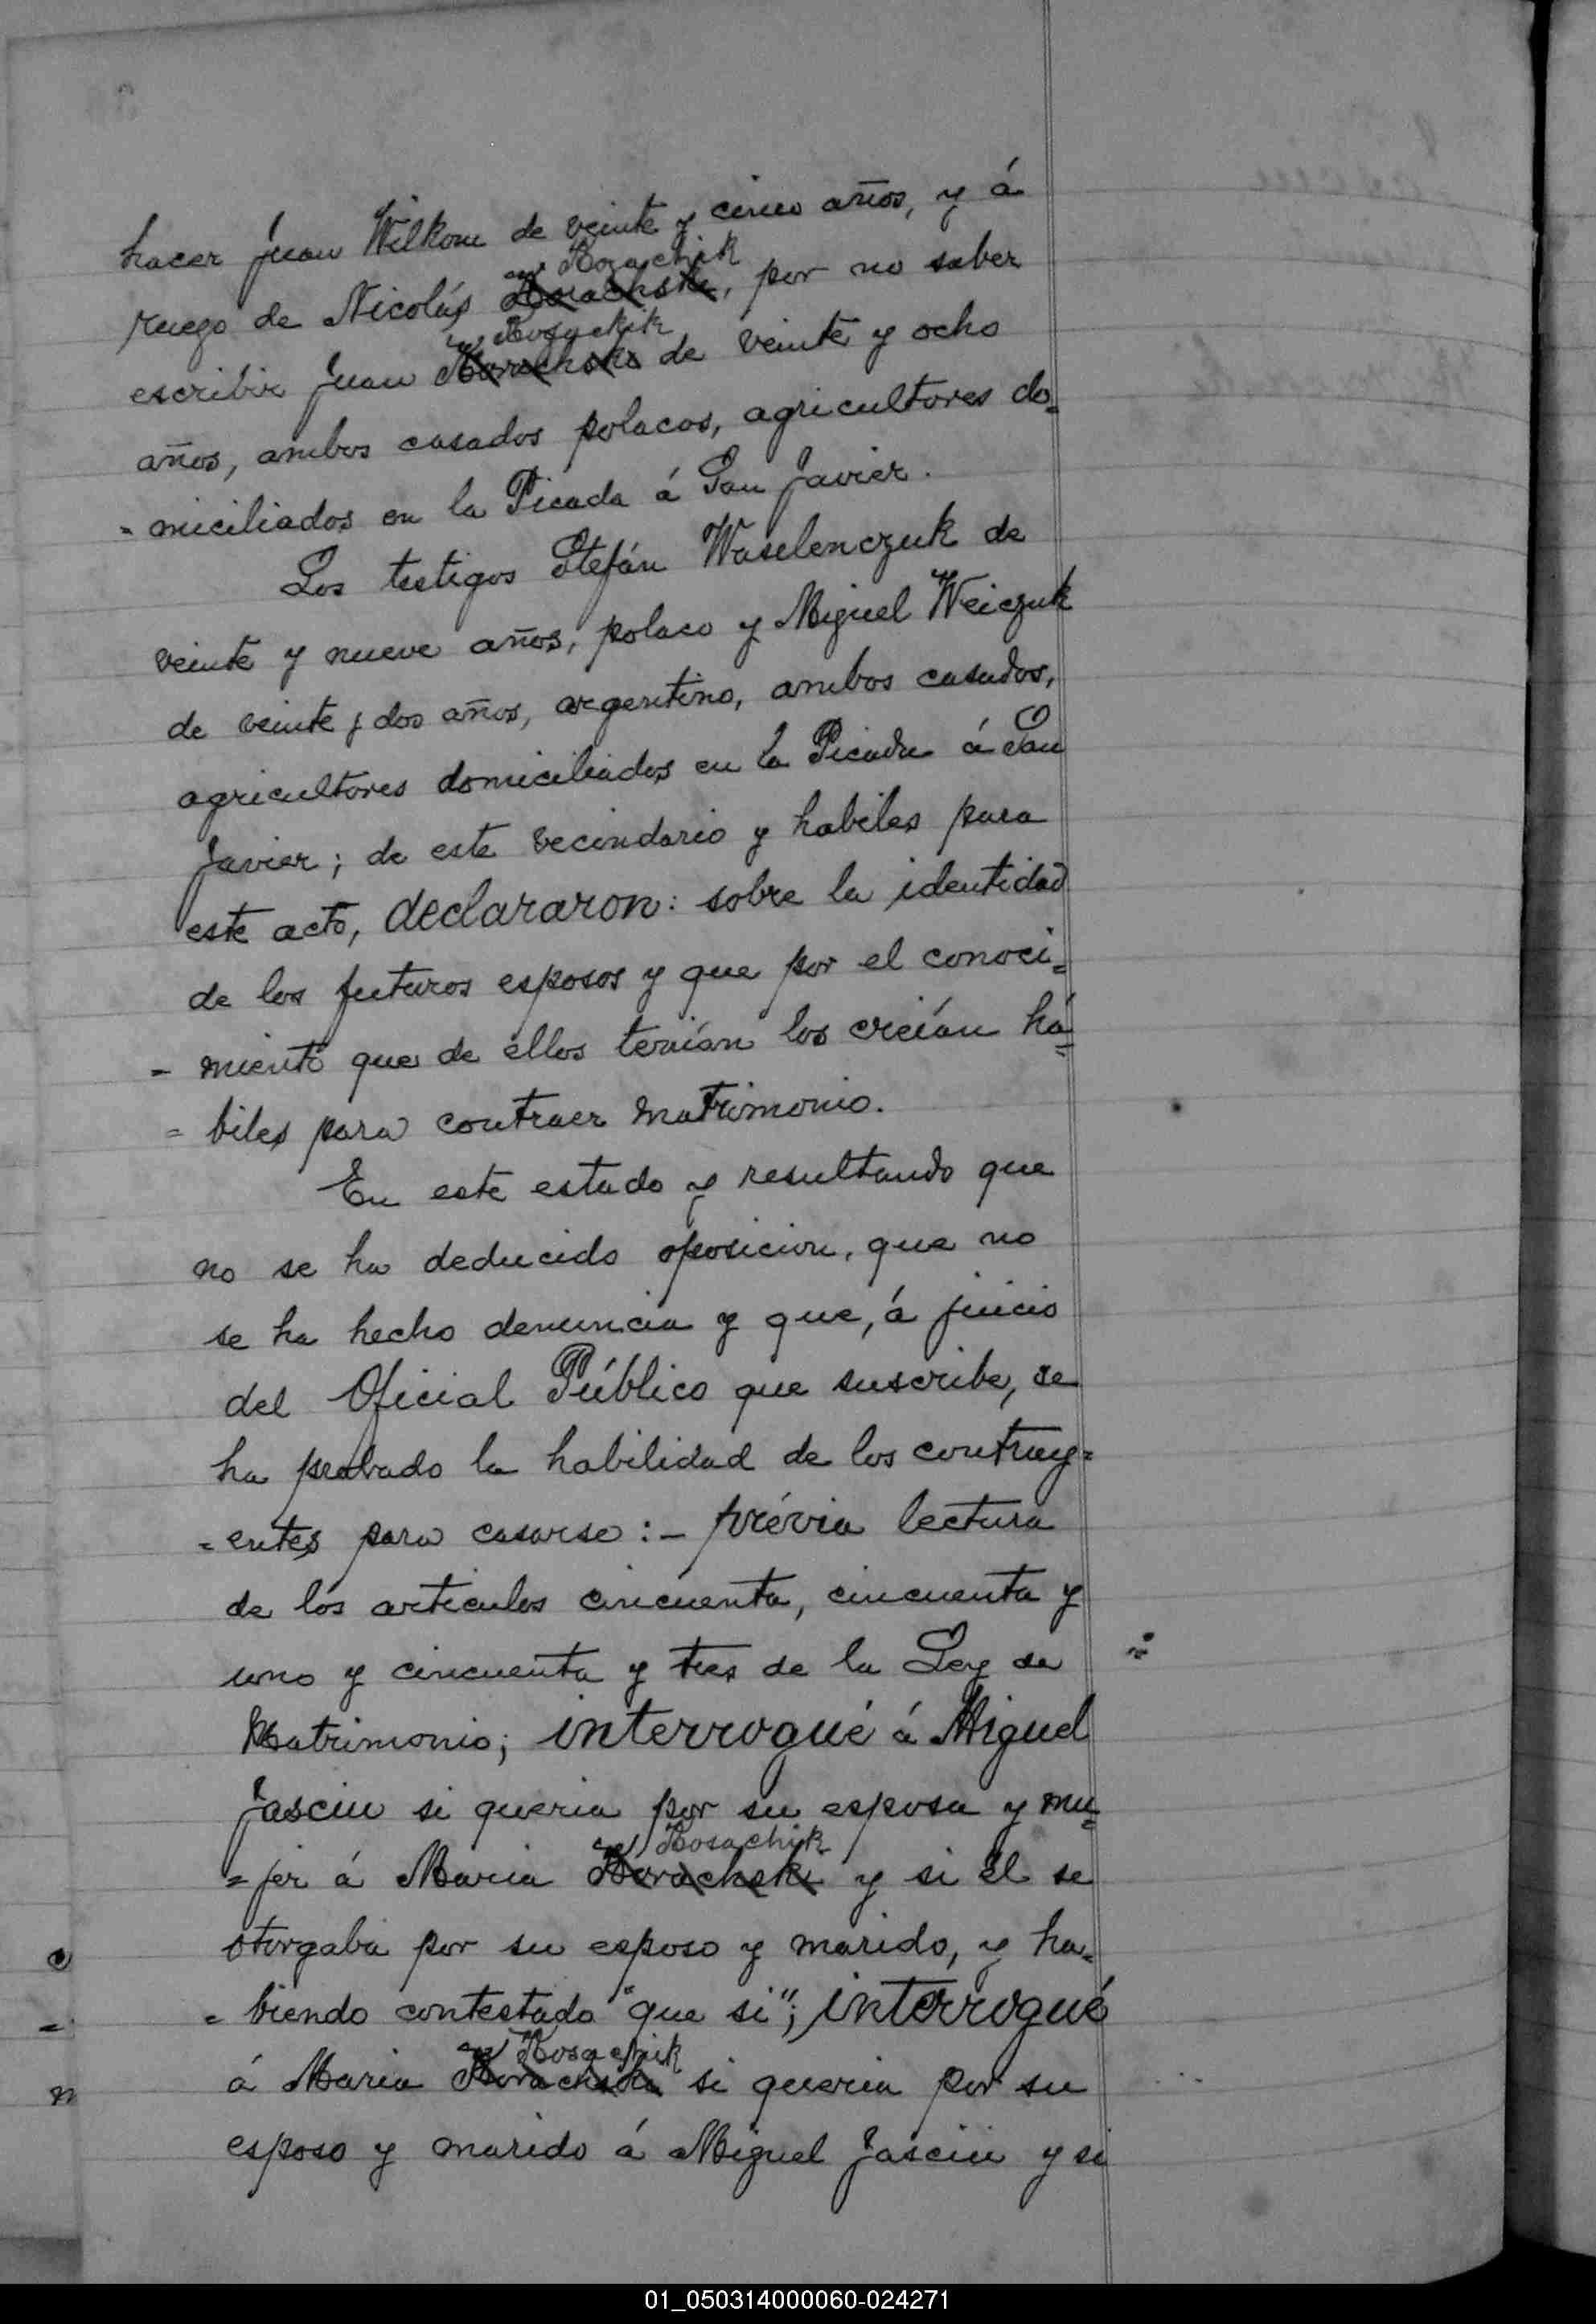 hacer Juan Wilkom de veinte y cinco años, y á
Kozachik
ruego de Nicolás Korachski, por no saber
Kozachik
escribir Juan Korachski de veinte y ocho
años, ambos casados polacos, agricultores do=
=miciliados en la Picada á San Javier.
Los testigos Stefán Waselenczuk de
veinte y nueve años, polaco y Miguel Weiczuk
de veinte y dos años, argentino, ambos casados,
agricultores domiciliados en la Picada á San
Javier; de este vecindario y habiles para
este acto, declararon: sobre la identidad
de los futuros esposos y que por el conoci=
=miento que de ellos tenían los creían há=
=biles para contraer matrimonio.
En este estado y resultando que
no se ha deducido oposicion, que no
se ha hecho denuncia y que, á juicio
del Oficial Público que suscribe, se
ha probado la habilidad de los contray=
=entes para casarse:- prévia lectura
de los articulos cincuenta, cincuenta y
uno y cincuenta y tres de la Ley de
Matrimonio; interrogué á Miguel
Jasciu si queria por su esposa y mu=
Kosachik
=jer á Maria Korachski y si él se
otorgaba por su esposo y marido, y ha=
=biendo contestado "que si"; interrogué
Kosachik
á Maria Korachski si queria por su
esposo y marido á Miguel Jasciu y si
01_050314000060-024271